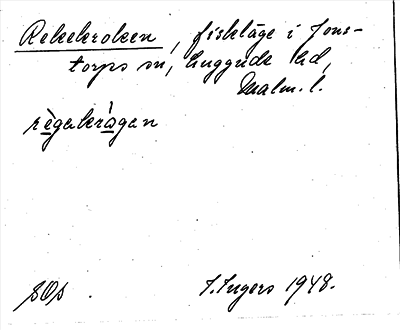 Rekekroken, fiskläge i Jons-
torps sn, Luggude hd,
Malm. l.
règakrå̀gan
SOp
I. Ingers 1948.